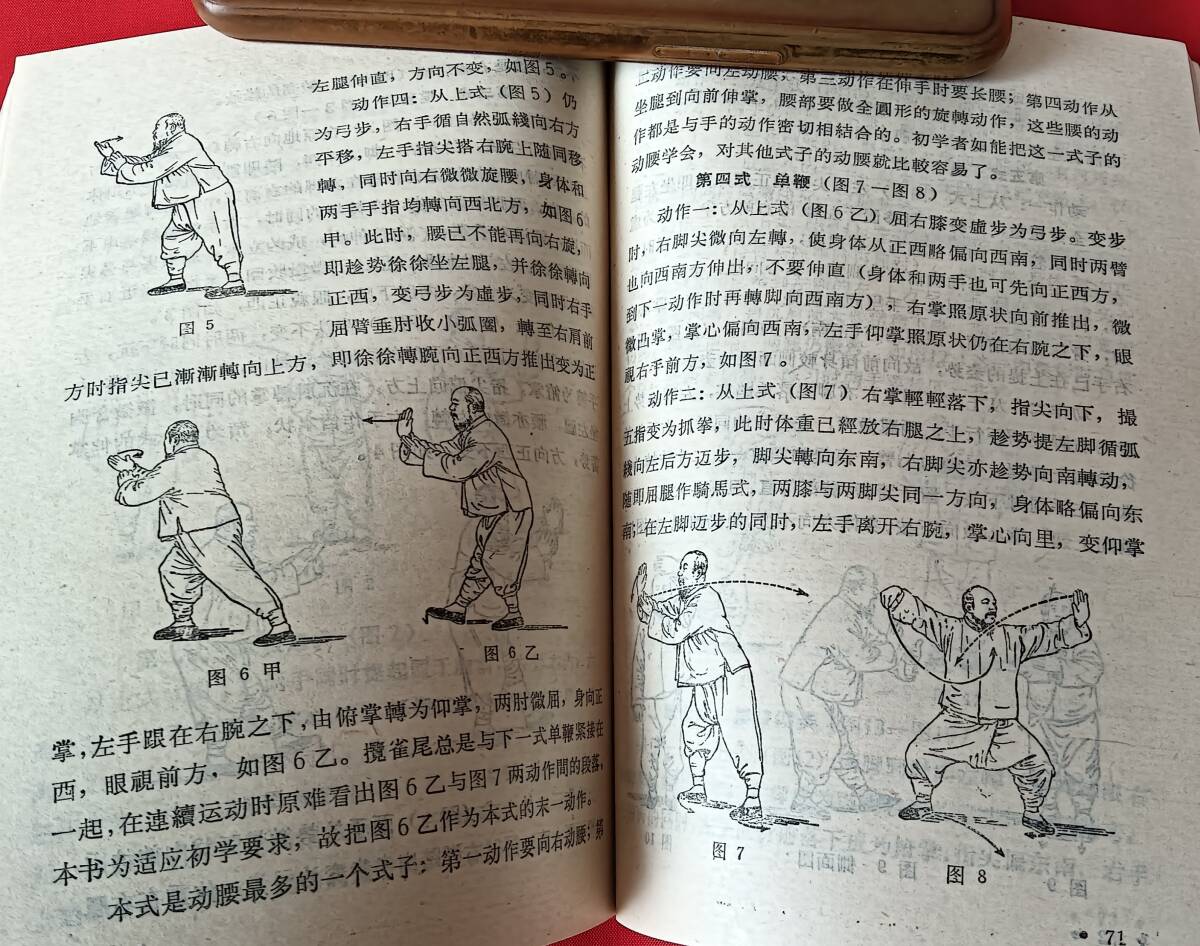 左腿伸直，方向不变，如图5。
动作四：从上式（图5）仍
为弓步，右手循自然弧綫向右方
平移，左手指尖搭右腕上随同移
轉，同时向右微微旋腰，身体和
两手手指均轉向西北方，如图6
甲。此时，腰已不能再向右旋，
即趁势徐徐坐左腿，并徐徐轉向
正西，变弓步为虛步，同时右手
屈臂垂肘收小弧圈，轉至右肩前
图 5
方时指尖已漸漸轉向上方，即徐徐轉腕向正西方推出变为正
图 6 甲
图 6 乙
掌，左手跟在右腕之下，由俯掌轉为仰掌，两肘微屈，身向正
西，眼視前方，如图6乙。攬雀尾总是与下一式单鞭紧接在
一起，在連續运动时原难看出图6乙与图7两动作間的段落，
本书为适应初学要求，故把图6乙作为本式的末一动作。
本式是动腰最多的一个式子：第一动作要向右动腰；第
二动作要向左动腰；第三动作在伸手时要长腰；第四动作从
坐腿到向前伸掌，腰部要做全圓形的旋轉动作，这些腰的动
作都是与手的动作密切相結合的。初学者如能把这一式子的
动腰学会，对其他式子的动腰就比較容易了。
第四式 单鞭（图7—图8）
动作一：从上式（图6乙）屈右膝变虛步为弓步。变步
时，右脚尖微向左轉，使身体从正西略偏向西南，同时两臂
也向西南方伸出，不要伸直（身体和两手也可先向正西方，
到下一动作时再轉脚向西南方），右掌照原状向前推出，微
微凸掌，掌心偏向西南，左手仰掌照原状仍在右腕之下，眼
視右手前方，如图7。
动作二：从上式（图7）右掌輕輕落下，指尖向下，撮
五指变为抓拳，此时体重已經放右腿之上，趁势提左脚循弧
綫向左后方迈步，脚尖轉向东南，右脚尖亦趁势向南轉动，
随即屈腿作騎馬式，两膝与两脚尖同一方向，身体略偏向东
南；在左脚迈步的同时，左手离开右腕，掌心向里，变仰掌
图 7
图 8
71